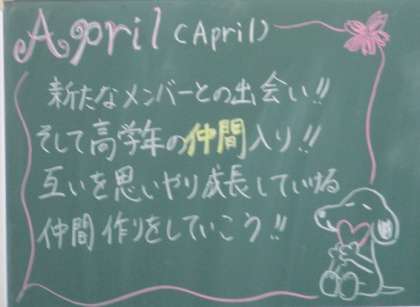 April (April)
新たなメンバーとの出会い!!
そして高学年の仲間入り!!
互いを思いやり成長していける
仲間作りをしていこう!!